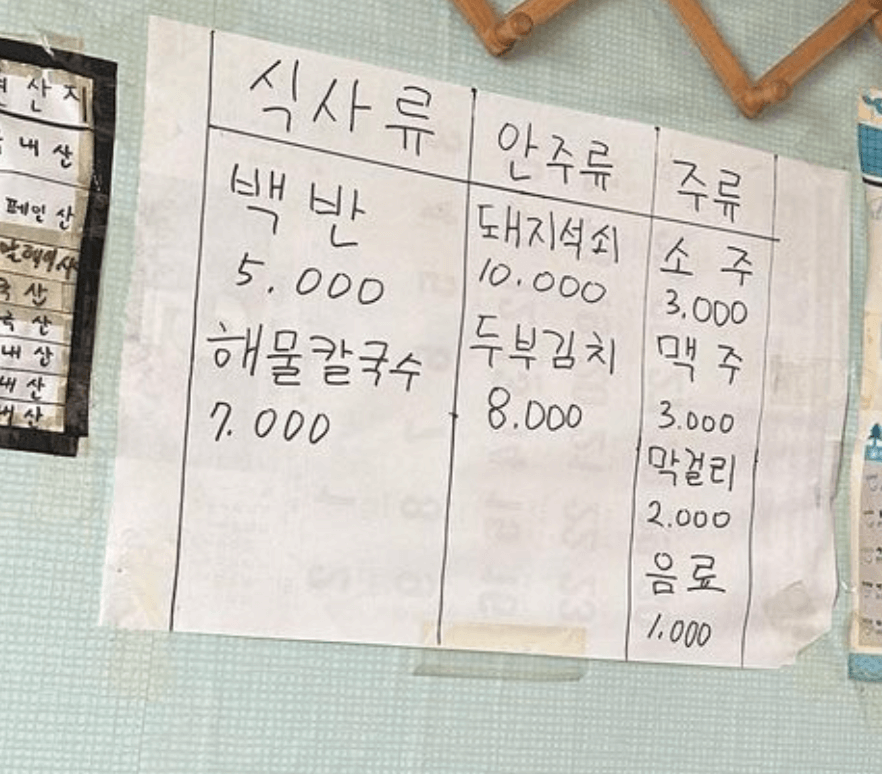 산지
내산
페인산
산
산
내산
내산
내산
식사류
백반
5.000
해물칼국수
7.000
안주류
돼지석쇠
10.000
두부김치
8.000
주류
소주
3.000
맥주
3.000
막걸리
2.000
음료
1.000